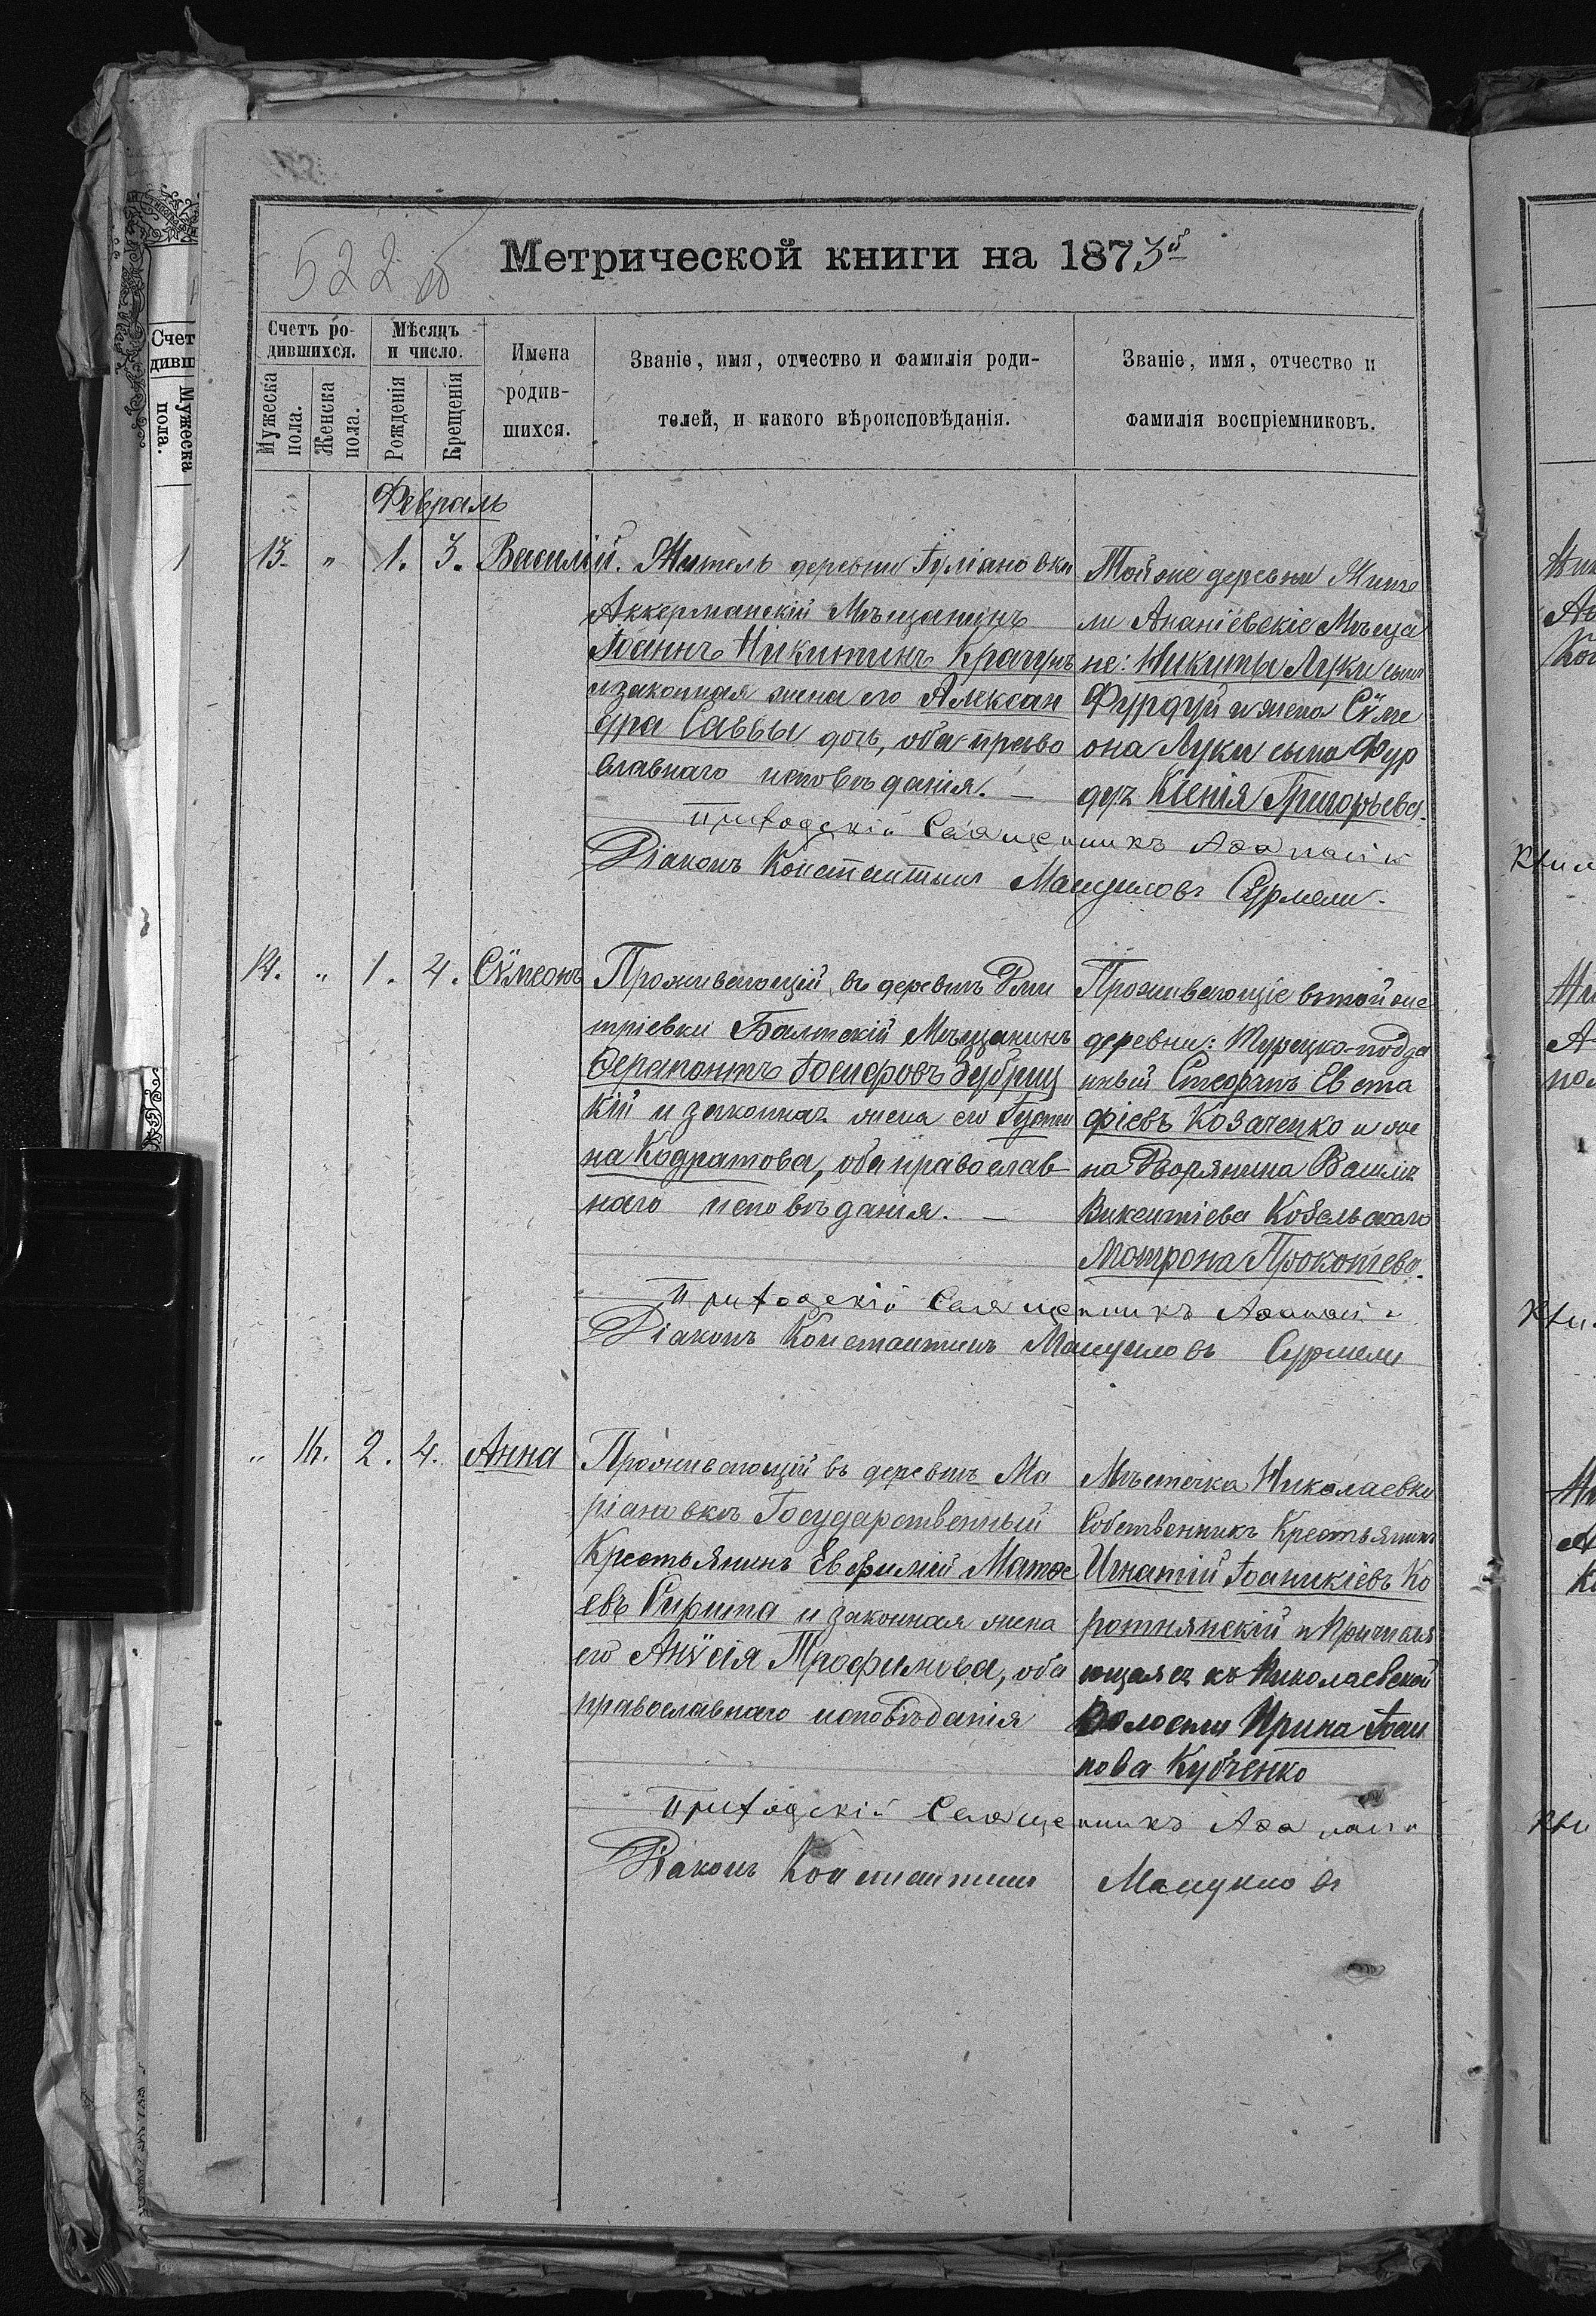 522 об
Метрической книги на 1873й
Счетъ родившихся.
Мѣсяцъ и число.
Имена родившихся.
Званіе, имя, отчество и фамилія роди-
телей, и какого вѣроисповѣданія.
Званіе, имя, отчество и
фамилія воспріемниковъ.
Мужеска пола.
Женска пола.
Рожденія
Крещенія
Февраль
13. " 1. 3. Василій.
Житель деревни Гуліановки
Аккерманскій Мѣщанинъ
Іоаннъ Никитинъ Крачунъ
и законная жена его Алексан
дра Саввы дочь, оба право
славнаго исповѣданія. —
Тойже деревни Жите
ли Ананіевскіе Мѣща
не: Никита Луки сынъ
Фурдуй и жена Сѵме
она Луки сына Фур
дуя Ксенія Григорьева.
Приходскій Священникъ Аѳанасій
Діаконъ Константинъ Мануиловъ Сурмели
14. " 1. 4. Сѵмеонъ
Проживающій въ деревнѣ Дми
тріевки Балтскій Мѣщанинъ
Ѳерапонтъ Іосифовъ Зубриц
кій и законная жена его Іусти
на Кодратова, оба православ-
наго исповѣданія. —
Проживающіе въ той же
деревни: Турецко-подда
нный Стефанъ Евста
фіевъ Козаченко и же
на Дворянина Василія
Викентіева Кобельскаго
Мотрона Прокопіева.
Приходскій Священникъ Аѳанасій
Діаконъ Константинъ Мануиловъ Сурмели
" 14. 2. 4. Анна
Проживающій въ деревнѣ Ма
ріановкѣ Государственный
Крестьянинъ Евфимій Матѳе
евъ Сирита и законная жена
его Анѵсія Трофимова, оба
православнаго исповѣданія
Мѣстечка Николаевки
Собственникъ Крестьянинъ
Игнатій Іоаникіевъ Ко
ротнянскій и Причисля
ющаяся къ Николаевской
Волости Ирина Іоан
нова Кубченко
Приходскій Священникъ Аѳанасій
Діаконъ Константинъ Мануиловъ